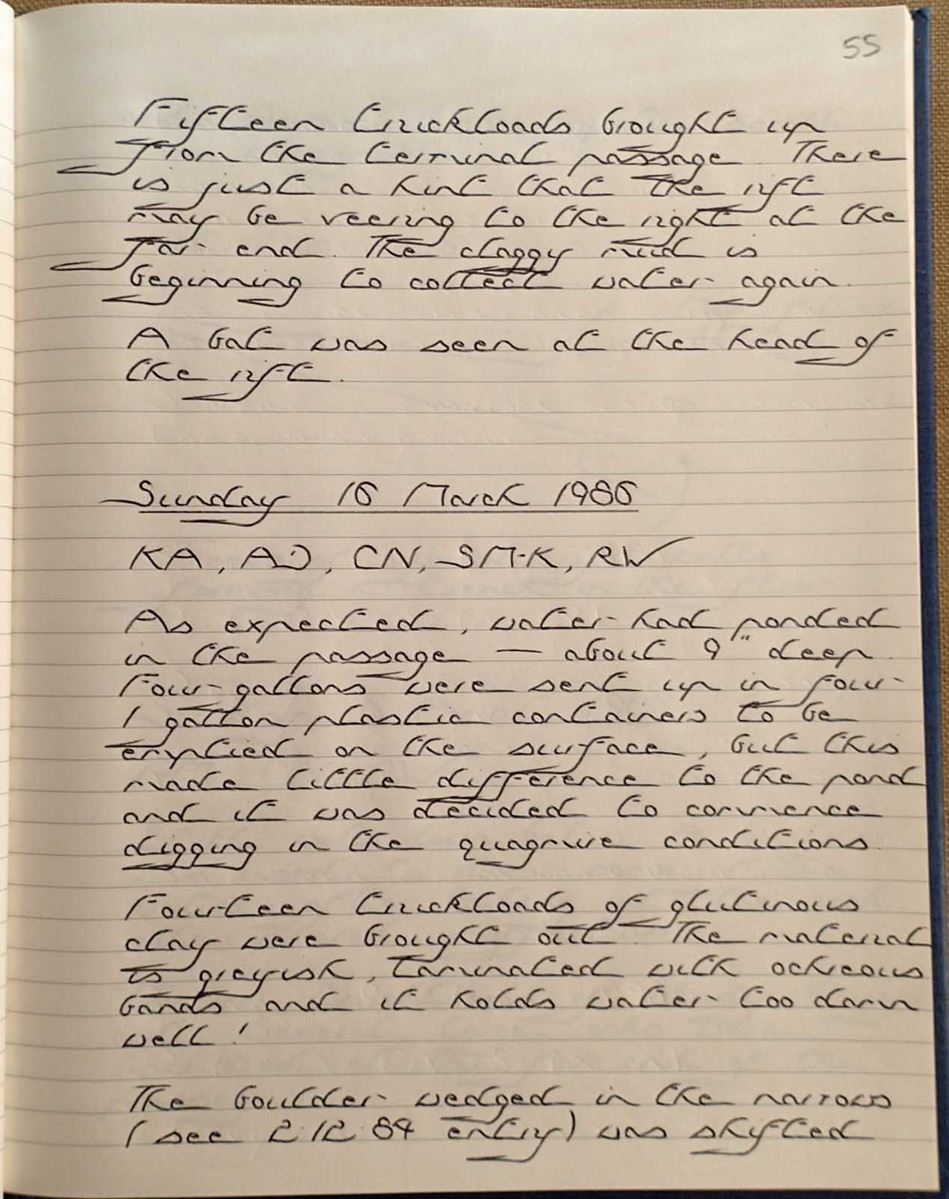 55
Fifteen truckloads brought up
from the terminal passage. There
is just a hint that the rift
may be veering to the right at the
far end. The claggy mud is
beginning to collect water again.
A bat was seen at the head of
the rift.
Sunday 16 March 1986
KA, AD, CN, SM-K, RW
As expected, water had ponded
in the passage — about 9" deep.
Four gallons were sent up in four
1 gallon plastic containers to be
emptied on the surface, but this
made little difference to the pond
and it was decided to commence
digging in the quagmire conditions.
Fourteen truckloads of glutinous
clay were brought out. The material
is greyish, laminated with ochreous
bands and it holds water too darn
well!
The boulder wedged in the narrows
(see 2.12.84 entry) was shifted